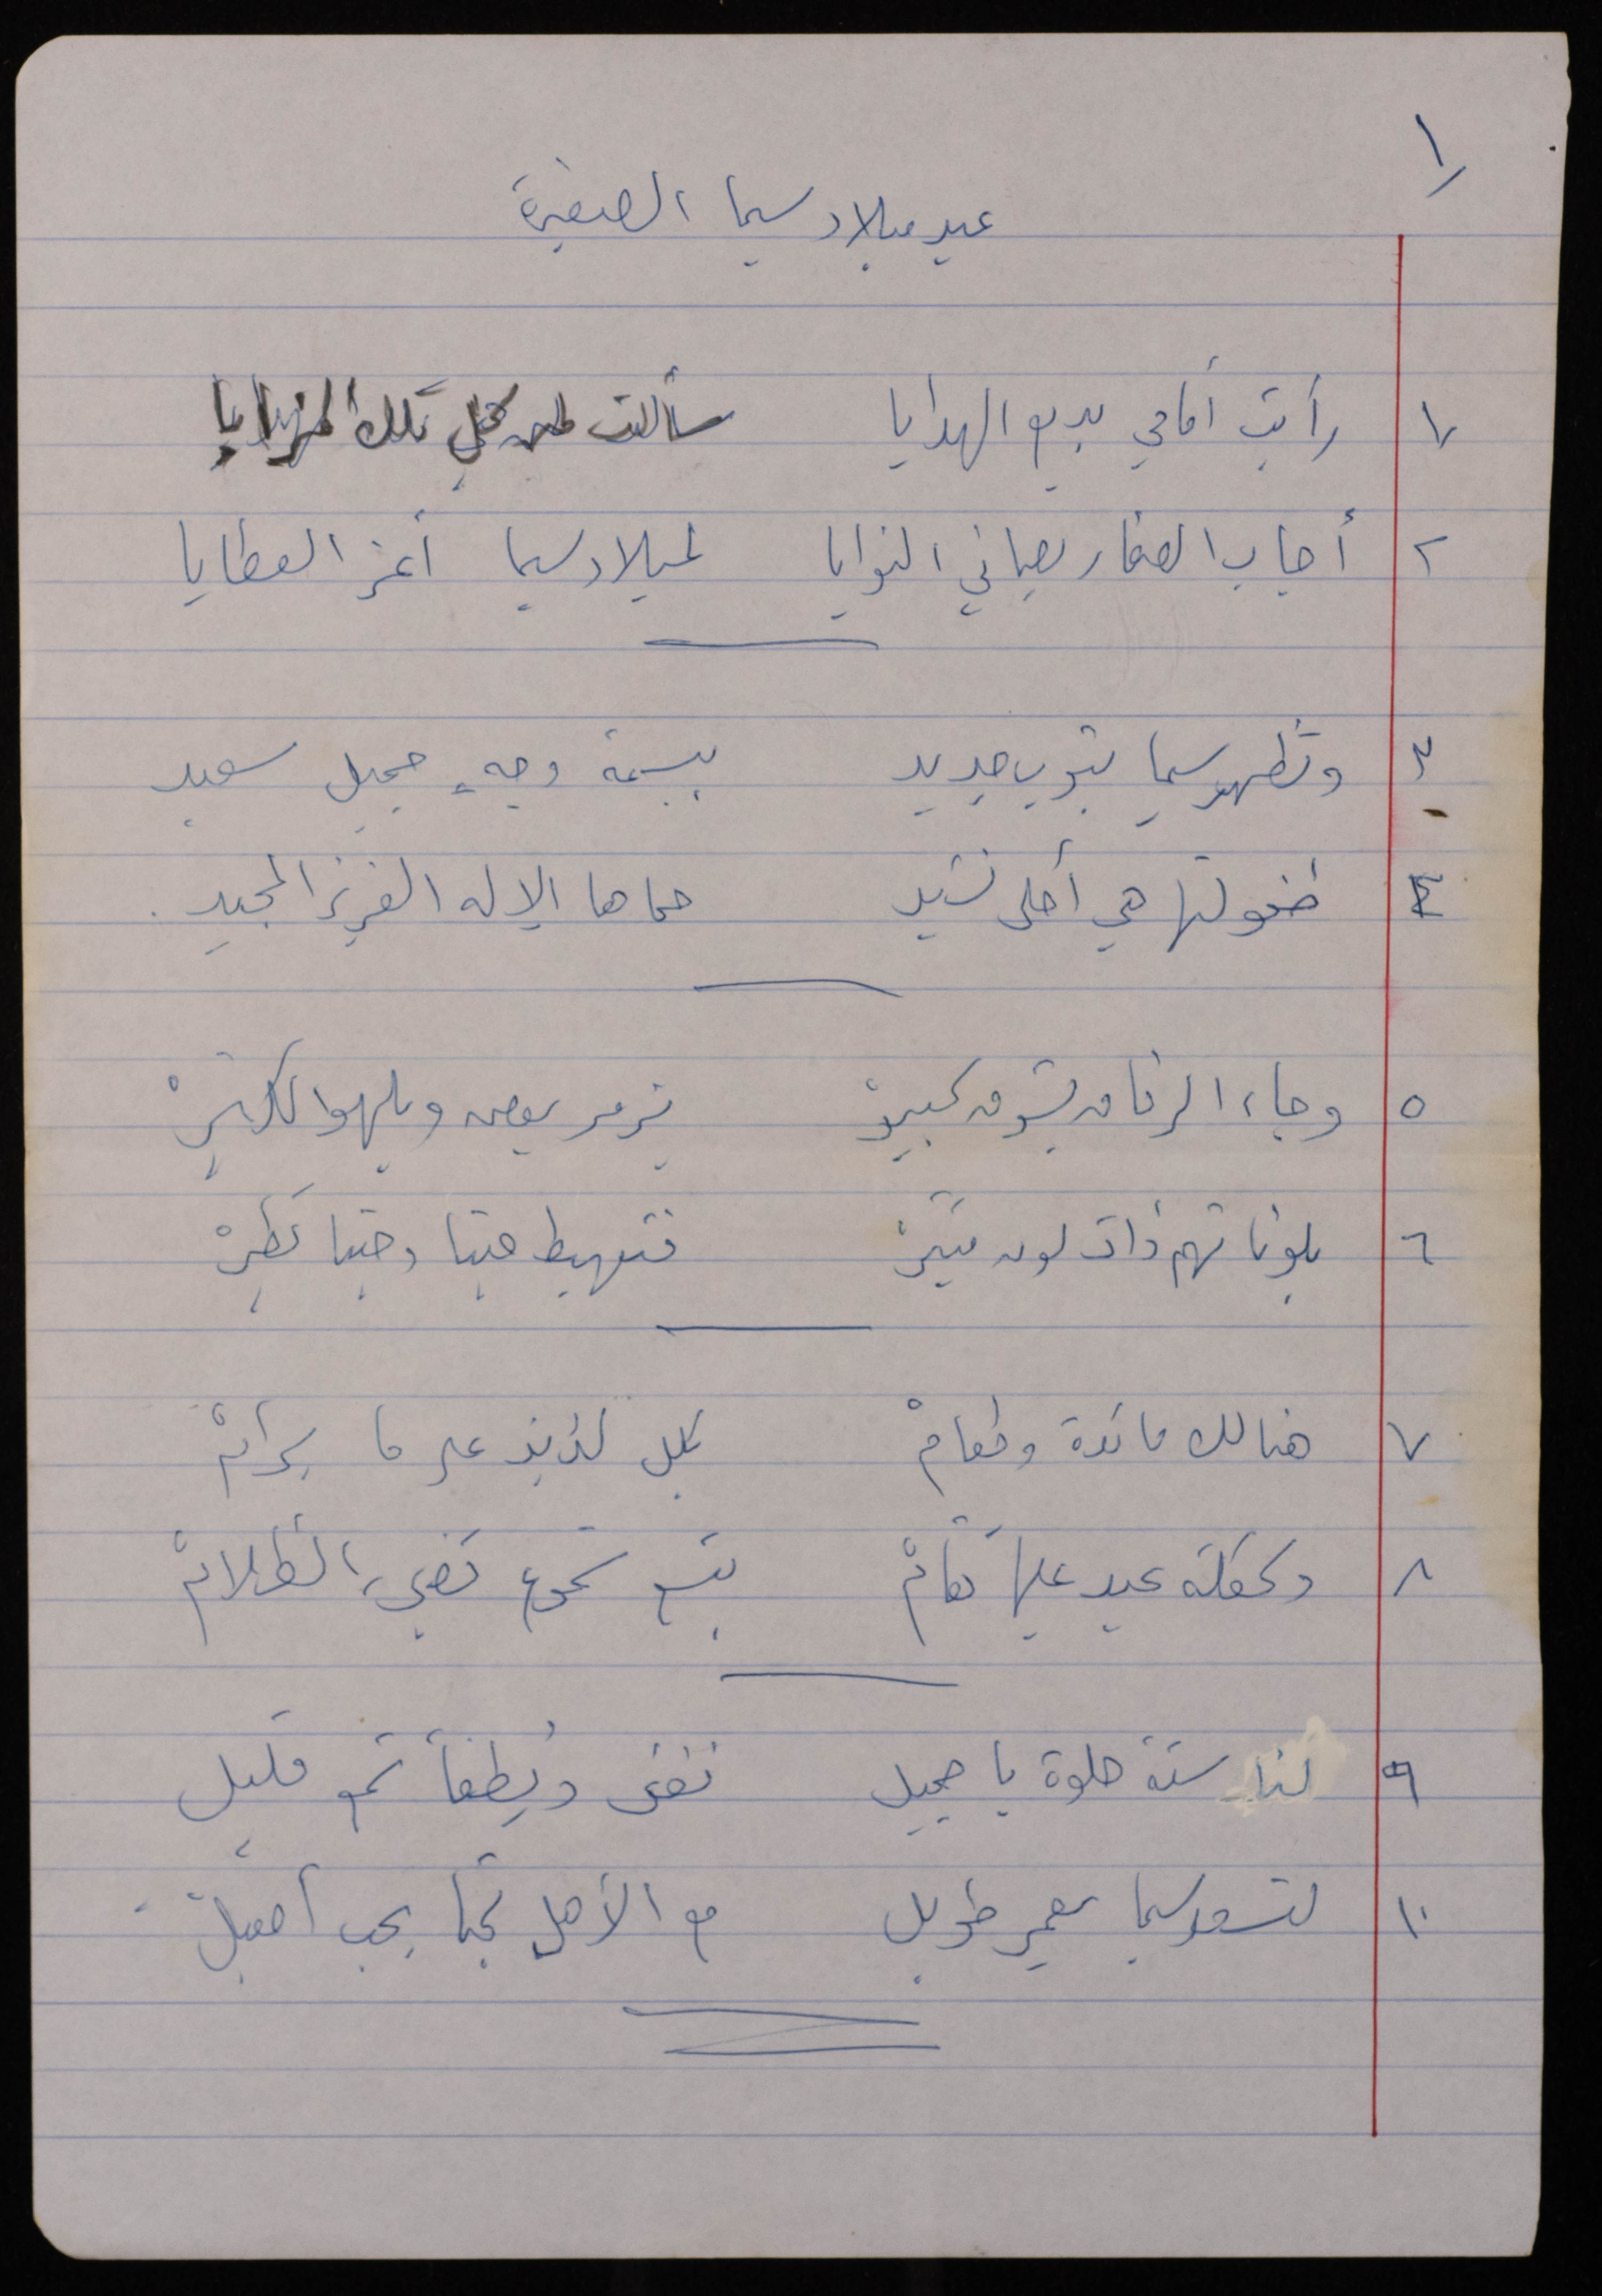 ١
عيد ميلاد سيما الصغيرة
١ رأيت أمامي بديع الهدايا سألت لمن كل تلك المزايا
٢ أجاب الصغار بصافي النوايا لميلاد سيما أعز العطايا
٣ وتظهر سيما بثوب جديد ببسمة وجهٍ جميل سعيد
٤ طفولتها هي أحلى نشيد حماها الإله العزيز المجيد.
٥ وجاء الرفاق بشوق كبيرْ يزمر بعض ويلهو الكثيرْ
٦ بلوناتهم ذات لون مثيرْ فتهبط حينا وحينا تطيرْ
٧ هنالك مائدة وطعامْ بكل لذيذ على ما يرامْ
٨ وكعكة عيد عليها تقامْ بتسع شموع تضيء الظلامْ
٩ لنا سنة حلوة يا جميل تغنى ويُطفأ شمع قليل
١٠ لتسعد سيما بعمر طويل مع الأهل تحيا بحب أصيل